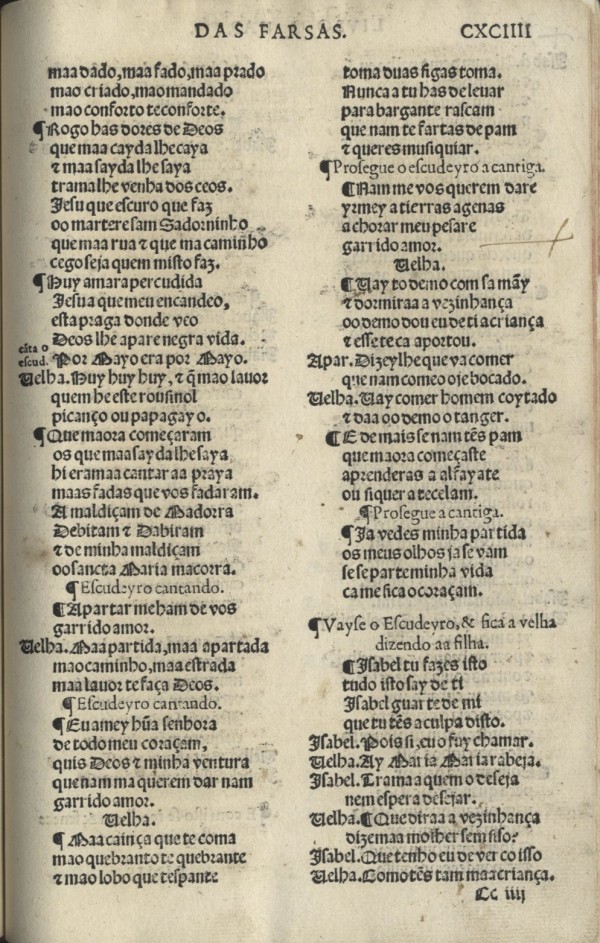 DAS FARSAS. CXCIIII
maa dado, maa fado, maa prado
mao criado, mao mandado
mao conforto te conforte.
¶Rogo has dores de Deos
que maa cayda lhe caya
⁊ maa sayda lhe saya
trama lhe venha dos ceos.
Jesu que escuro que faz
oo martere sam Sadorninho
que maa rua ⁊ que ma caminho
cego seja quem misto faz.
¶Huy amara percudida
Jesu a que meu encandeo,
esta praga donde veo
Deos lhe apare negra vida.
cãta o escud. Por Mayo era por Mayo.
Uelha. Huy huy huy, ⁊ q̃ mao lauor
quem he este rousinol
picanço ou papagayo.
¶Que maora começaram
os que maa sayda lhe saya
hi eramaa cantar aa praya
maas fadas que vos fadaram.
A maldiçam de Madorra
Debitam ⁊ Dabiram
⁊ de minha maldiçam
oo sancta Maria macorra.
¶Escudeyro cantando.
¶Apartar me ham de vos
garrido amor.
Uelha. Maa partida, maa apartada
mao caminho, maa estrada
maa lauor te faça Deos.
¶Escudeyro cantando.
¶Eu amey hũa senhora
de todo meu coraçam,
quis Deos ⁊ minha ventura
que nam ma querem dar nam
garrido amor.
Uelha.
¶Maa cainça que te coma
mao quebranto te quebrante
⁊ mao lobo que tespante
toma duas figas toma.
Nunca a tu has de leuar
para bargante rascam
que nam te fartas de pam
⁊ queres musiquiar.
¶Prosegue o escudeyro a cantiga.
¶Nam me vos querem dare
yrmey a tierras agenas
a chorar meu pesare
garrido amor.
Uelha.
¶Uay to demo com sa mãy
⁊ dormiraa a vezinhança
oo demo dou eu de ti a criança
⁊ esse te ca aportou.
Apar. Dizeylhe que va comer
que nam comeo oje bocado.
Uelha. Uay comer homem coytado
⁊ daa oo demo o tanger.
¶E de mais se nam tẽs pam
que maora começaste
aprenderas a alfayate
ou siquer a tecelam.
¶Prosegue a cantiga.
¶Ja vedes minha partida
os meus olhos ja se vam
se se parte minha vida
ca me fica o coraçam.
¶Vayse o Escudeyro, & fica a velha
dizendo aa filha.
¶Isabel tu fazes isto
tudo isto say de ti
Isabel guarte de mi
que tu tẽs a culpa disto.
Isabel. Pois si, eu o fuy chamar.
Uelha. Ay Maria Maria rabeja.
Isabel. Trama a quem o deseja
nem espera desejar.
Uelha. ¶Que diraa a vezinhança
dize maa molher sem siso?
Isabel. Que tenho eu de ver co isso
Uelha. Como tẽs tam maa criança.
Cc iiij